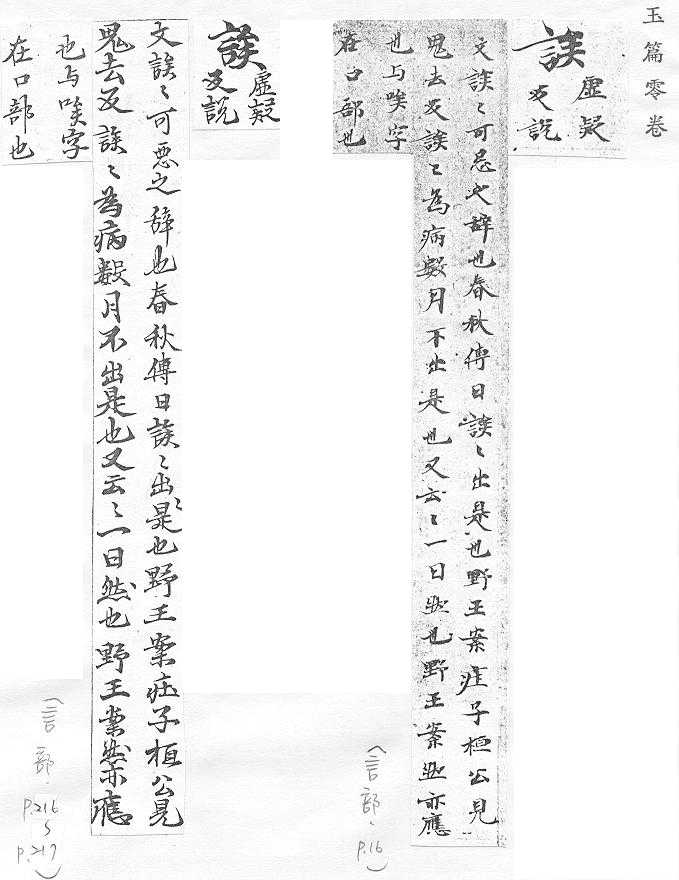 玉篇零卷
誒
虛疑
反説
文誒〻可忌之辞也春秋傳曰誒〻出是也野王案疰子桓公見
鬼去反誒〻為病數月不出是也又云〻一曰然也野王案然亦應
也与唉字
在口部也
(言部、P.16)
誒
虛疑
反説
文誒〻可惡之辞也春秋傳曰誒〻出〻是也野王案疰子桓公見
鬼去反誒〻為病數月不出是也又云〻一曰然也野王案然亦應
也与唉字
在口部也
(言部.
P.216
~
P.217)